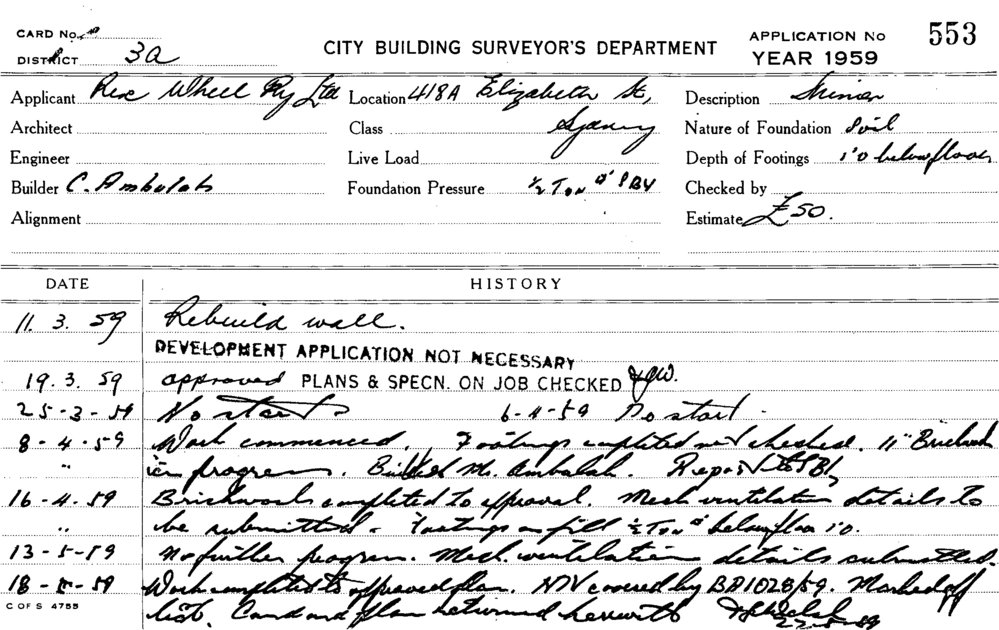 CARD No.
DISTRICT 3a
CITY BUILDING SURVEYOR'S DEPARTMENT
APPLICATION No 553
YEAR 1959
Applicant Rex Wheel Pty Ltd Location 418A Elizabeth St, Description Minor
Architect Class Sydney Nature of Foundation Soil
Engineer Live Load Depth of Footings 1'0 below floor
Builder C. Ambalah Foundation Pressure ½ Ton Checked by
Alignment Estimate £50.
DATE HISTORY
11. 3. 59 Rebuild wall.
DEVELOPMENT APPLICATION NOT NECESSARY
19. 3. 59 approved PLANS & SPECN. ON JOB CHECKED
25-3-59 No start 6-4-59 No start.
8-4-59 Work commenced. Footings completed not checked. 11" Brickwork
" in progress. Builder Mr. Ambalah. Report to
16-4-59 Brickwork completed to approval. Mech ventilation details to
" be submitted. Footings on fill ½ Ton below floor 1'0.
13-5-59 No further progress. Mech. ventilation details submitted.
18-5-59 Work completed to approved plan. MV covered by BA1028/59. Marked off
C OF S 4755 list. Card and plan returned herewith 22-5-59